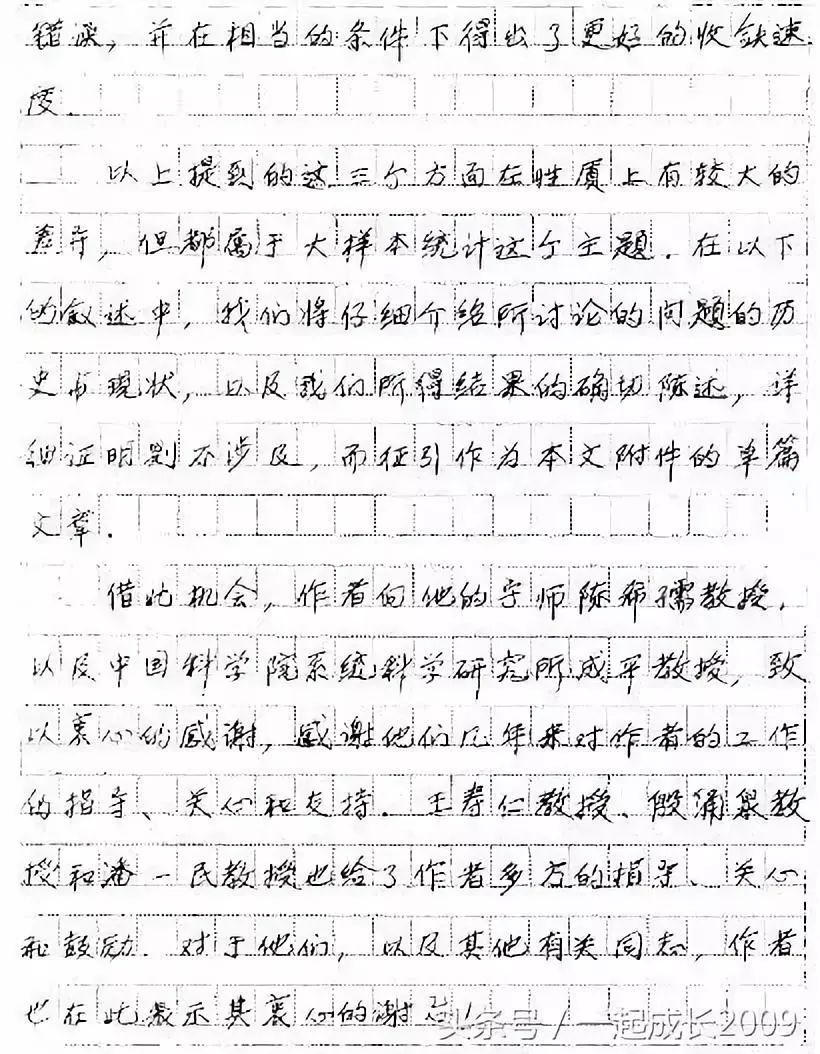 错误，并在相当的条件下得出了更好的收敛速
度.
以上提到的这三个方面在性质上有较大的
差异，但都属于大样本统计这个主题．在以下
的叙述中，我们将仔细介绍所讨论的问题的历
史与现状，以及我们所得结果的确切陈述，详
细证明则不涉及，而征引作为本文附件的单篇
文章.
借此机会，作者向他的导师陈希孺教授，
以及中国科学院系统科学研究所成平教授，致
以衷心的感谢，感谢他们几年来对作者的工作
的指导、关心和支持．王寿仁教授、殷涌泉教
授和潘一民教授也给了作者多方的指导、关心
和鼓励．对于他们，以及其他有关同志，作者
也在此表示其衷心的谢意！
头条号/一起成长2009